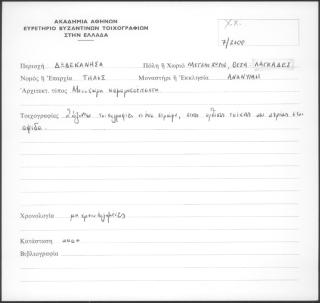 ΑΚΑΔΗΜΙΑ ΑΘΗΝΩΝ
ΕΥΡΕΤΗΡΙΟ ΒΥΖΑΝΤΙΝΩΝ ΤΟΙΧΟΓΡΑΦΙΩΝ
ΣΤΗΝ ΕΛΛΑΔΑ
Χ.Χ.
7/2000
Περιοχή ΔΩΔΕΚΑΝΗΣΑ Πόλη ἤ Χωριό ΜΕΓΑΛΟ ΧΩΡΙΟ, ΘΕΣΗ ΛΑΓΚΑΔΕΣ
Νομός ἤ Ἐπαρχία ΤΗΛΟΣ Μοναστήρι ἤ Ἐκκλησία ΑΝΩΝΥΜΗ
Ἀρχιτεκτ. τύπος Μονόχωρη καμαροσκέπαστη
Τοιχογραφίες Σώζονται τοιχογραφίες σ' ένα στρώμα, στους τοίχους και
αψίδα.
Χρονολογία μη χρονολογημένες
Κατάσταση κακή
Βιβλιογραφία